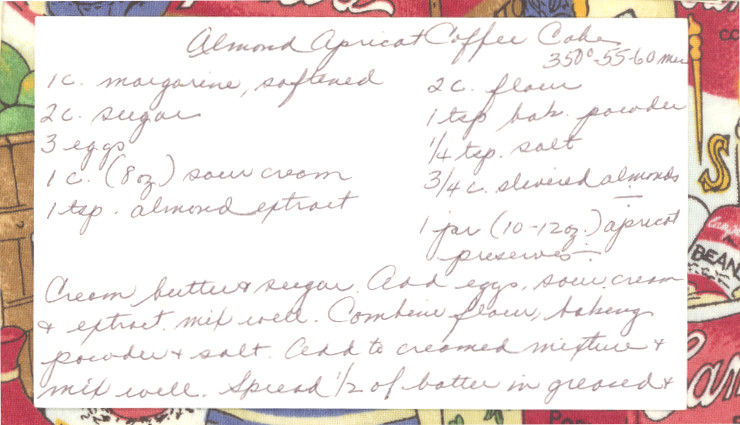 Almond Apricot Coffee Cake
350°-55-60 min
1 c. margarine, softened
2 c. sugar
3 eggs
1 c. (8 oz) sour cream
1 tsp. almond extract
2 c. flour
1 tsp bak. powder
1/4 tsp. salt
3/4 c. slivered almonds
1 jar (10-12oz.) apricot
preserves
Cream butter & sugar. Add eggs, sour cream
& extract. mix well. Combine flour, baking
powder & salt. Add to creamed mixture &
mix well. Spread 1/2 of batter in greased &
BEAN